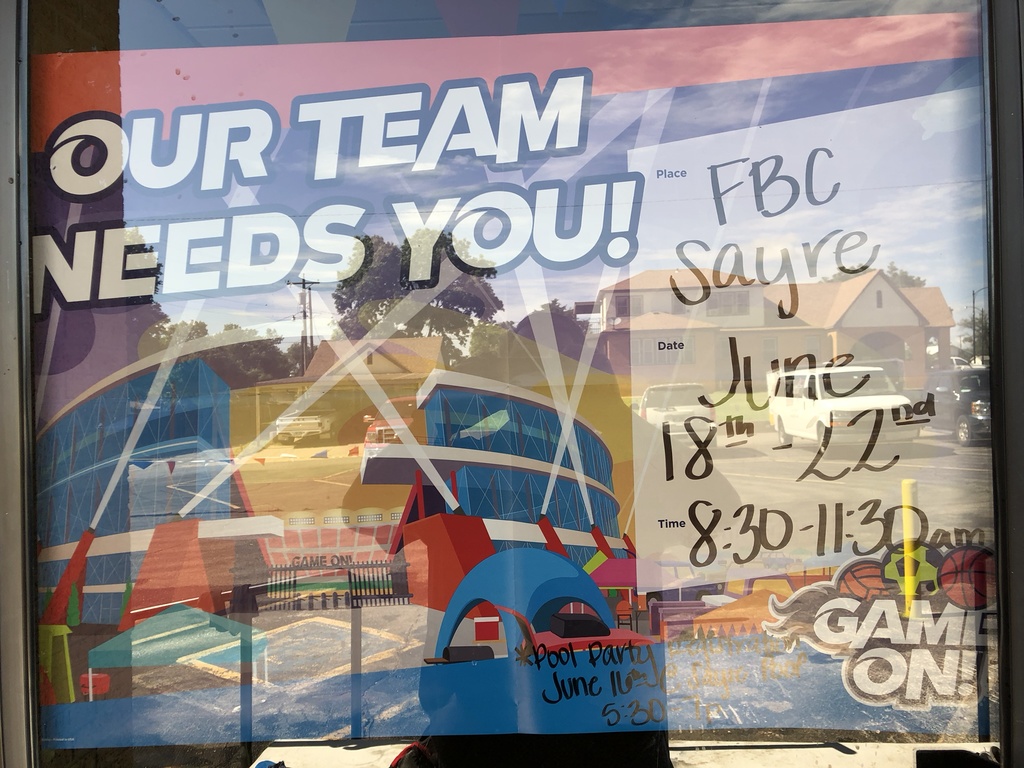 OUR TEAM
NEEDS YOU!
Place
FBC
Sayre
Date
June
18th - 22nd
Time 8:30-11:30am
GAME ON!
GAME
ON!
*Pool Party
June 16th
5:30 - 7pm